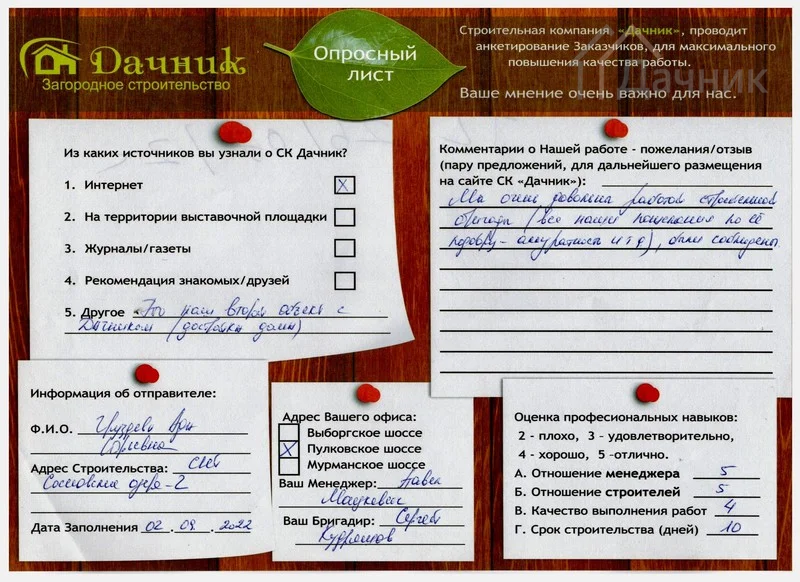 Дачник
Загородное строительство
Опросный
лист
Строительная компания «Дачник», проводит
анкетирование Заказчиков, для максимального
повышения качества работы.
Дачник
Ваше мнение очень важно для нас.
Из каких источников вы узнали о СК Дачник?
1. Интернет X
2. На территории выставочной площадки
3. Журналы/газеты
4. Рекомендация знакомых/друзей
5. Другое Это наш второй объект с
Дачником (достройка дома)
Комментарии о Нашей работе - пожелания/отзыв
(пару предложений, для дальнейшего размещения
на сайте СК «Дачник»):
Мы очень довольны работой строителей
бригады (все наши пожелания по её
подбору - аккуратность и т д), были соблюдены.
Информация об отправителе:
Ф.И.О.
Сергеевна
Адрес Строительства: СНТ
Сосновские озёра-2
Дата Заполнения 02 . 09 . 2022
Адрес Вашего офиса:
Выборгское шоссе
X Пулковское шоссе
Мурманское шоссе
Ваш Менеджер: Павел
Мацкевич
Ваш Бригадир: Сергей
Кудряшов
Оценка професиональных навыков:
2 - плохо, 3 - удовлетворительно,
4 - хорошо, 5 -отлично.
А. Отношение менеджера 5
Б. Отношение строителей 5
В. Качество выполнения работ 4
Г. Срок строительства (дней) 10